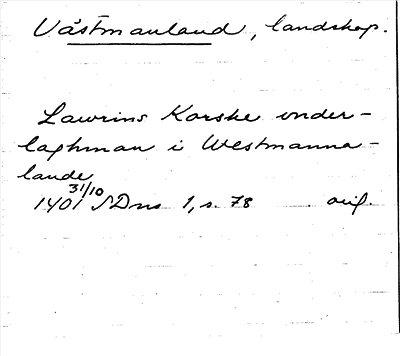 Västmanland, landskap.
Lawrins Karske vnder-
laghman i Westmanna-
lande
1401 31/10 SDns 1, s. 78 orig.